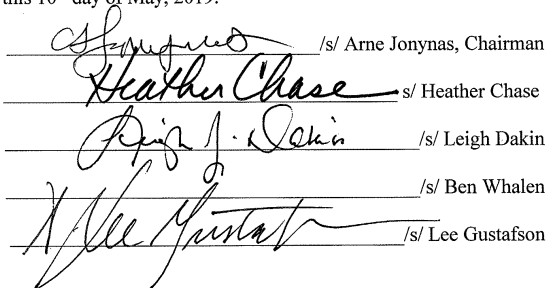 this 10th day of May, 2019.
/s/ Arne Jonynas, Chairman
Heather Chase s/ Heather Chase
Leigh J. Dakin /s/ Leigh Dakin
/s/ Ben Whalen
Lee Gustafson /s/ Lee Gustafson